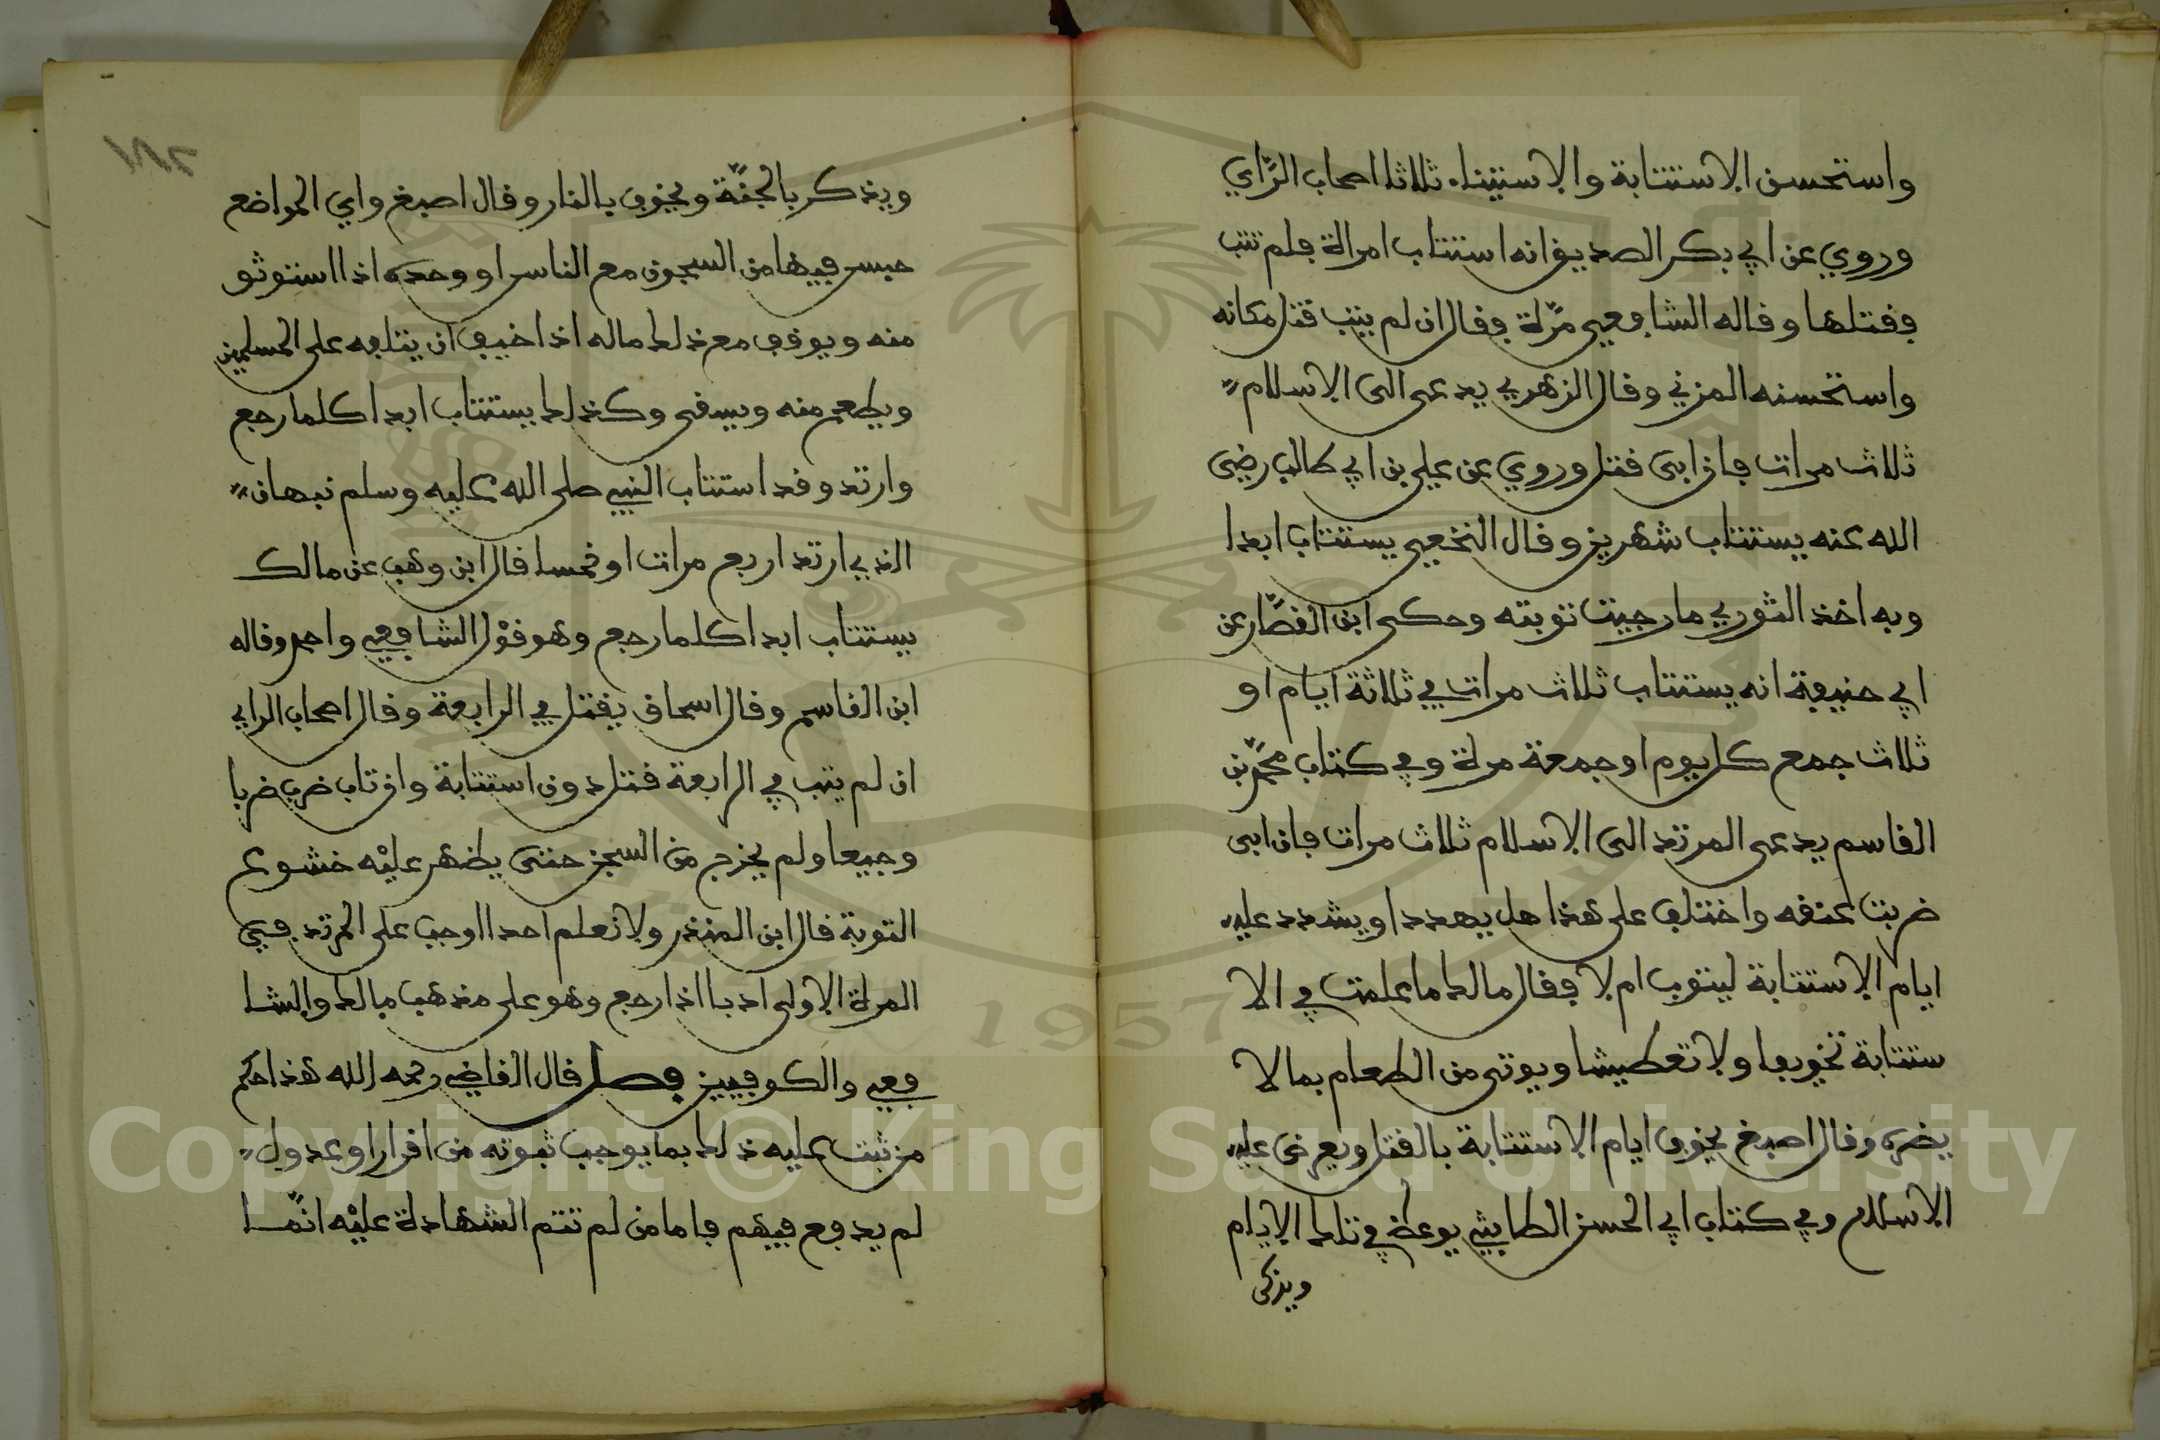 واستحسن الاستتابة والاستيناء ثلاثا اصحاب الرأي
وروي عن ابي بكر الصديق انه استتاب امراة فلم تتب
فقتلها وقاله الشافعي مرّة فقال ان لم يتب قتل مكانه
واستحسنه المزني وقال الزهري يدعى الى الاسلام
ثلاث مرات فان ابى قتل وروي عن علي بن ابي طالب رضي
الله عنه يستتاب شهرين وقال النخعي يستتاب ابدا
وبه اخذ الثوري ما رجيت توبته وحكى ابن القصّار عن
ابي حنيفة انه يستتاب ثلاث مرات في ثلاثة ايام او
ثلاث جمع كل يوم او جمعة مرة وفي كتاب محمّد بن
القاسم يدعى المرتد الى الاسلام ثلاث مرات فان ابى
ضربت عنقه واختلف على هذا هل يهدد او يشدد عليه
ايام الاستتابة ليتوب ام لا فقال مالك ما علمت في الا
ستتابة تخويفا ولا تعطيشا ويوتى من الطعام بما لا
يضره وقال اصبغ يخوف ايام الاستتابة بالقتل ويعرض عليه
الاسلام وفي كتاب ابي الحسن الطابثي يوعظ في تلك الايام
ويذكر
٢٨١
ويذكر بالجنّة ويخوف بالنار وقال اصبغ واي المواضع
حبس فيها من السجون مع الناس او وحده اذا استوثق
منه ويوقف مع ذلك ماله اذا خيف ان يتلفه على المسلمين
ويطعم منه ويسقى وكذلك يستتاب ابدا كلما رجع
وارتد وقد استتاب النبي صلى الله عليه وسلم نبهان
الذي ارتد اربع مرات او خمسا قال ابن وهب عن مالك
يستتاب ابدا كلما رجع وهو قول الشافعي واحمد وقاله
ابن القاسم وقال اسحاق يقتل في الرابعة وقال اصحاب الراي
ان لم يتب في الرابعة قتل دون استتابة وان تاب ضرب ضربا
وجيعا ولم يخرج من السجن حتى يظهر عليه خشوع
التوبة قال ابن المنذر ولا نعلم احدا اوجب على المرتد في
المرة الاولى ادبا اذا رجع وهو على مذهب مالك والشا
فعي والكوفيين فصل قال القاضي رحمه الله هذا حكم
من ثبت عليه ذلك بما يوجب ثبوته من اقرار او عدول
لم يدفع فيهم فاما من لم تتم الشهادة عليه انّما
Copyright © King Saud University
1957